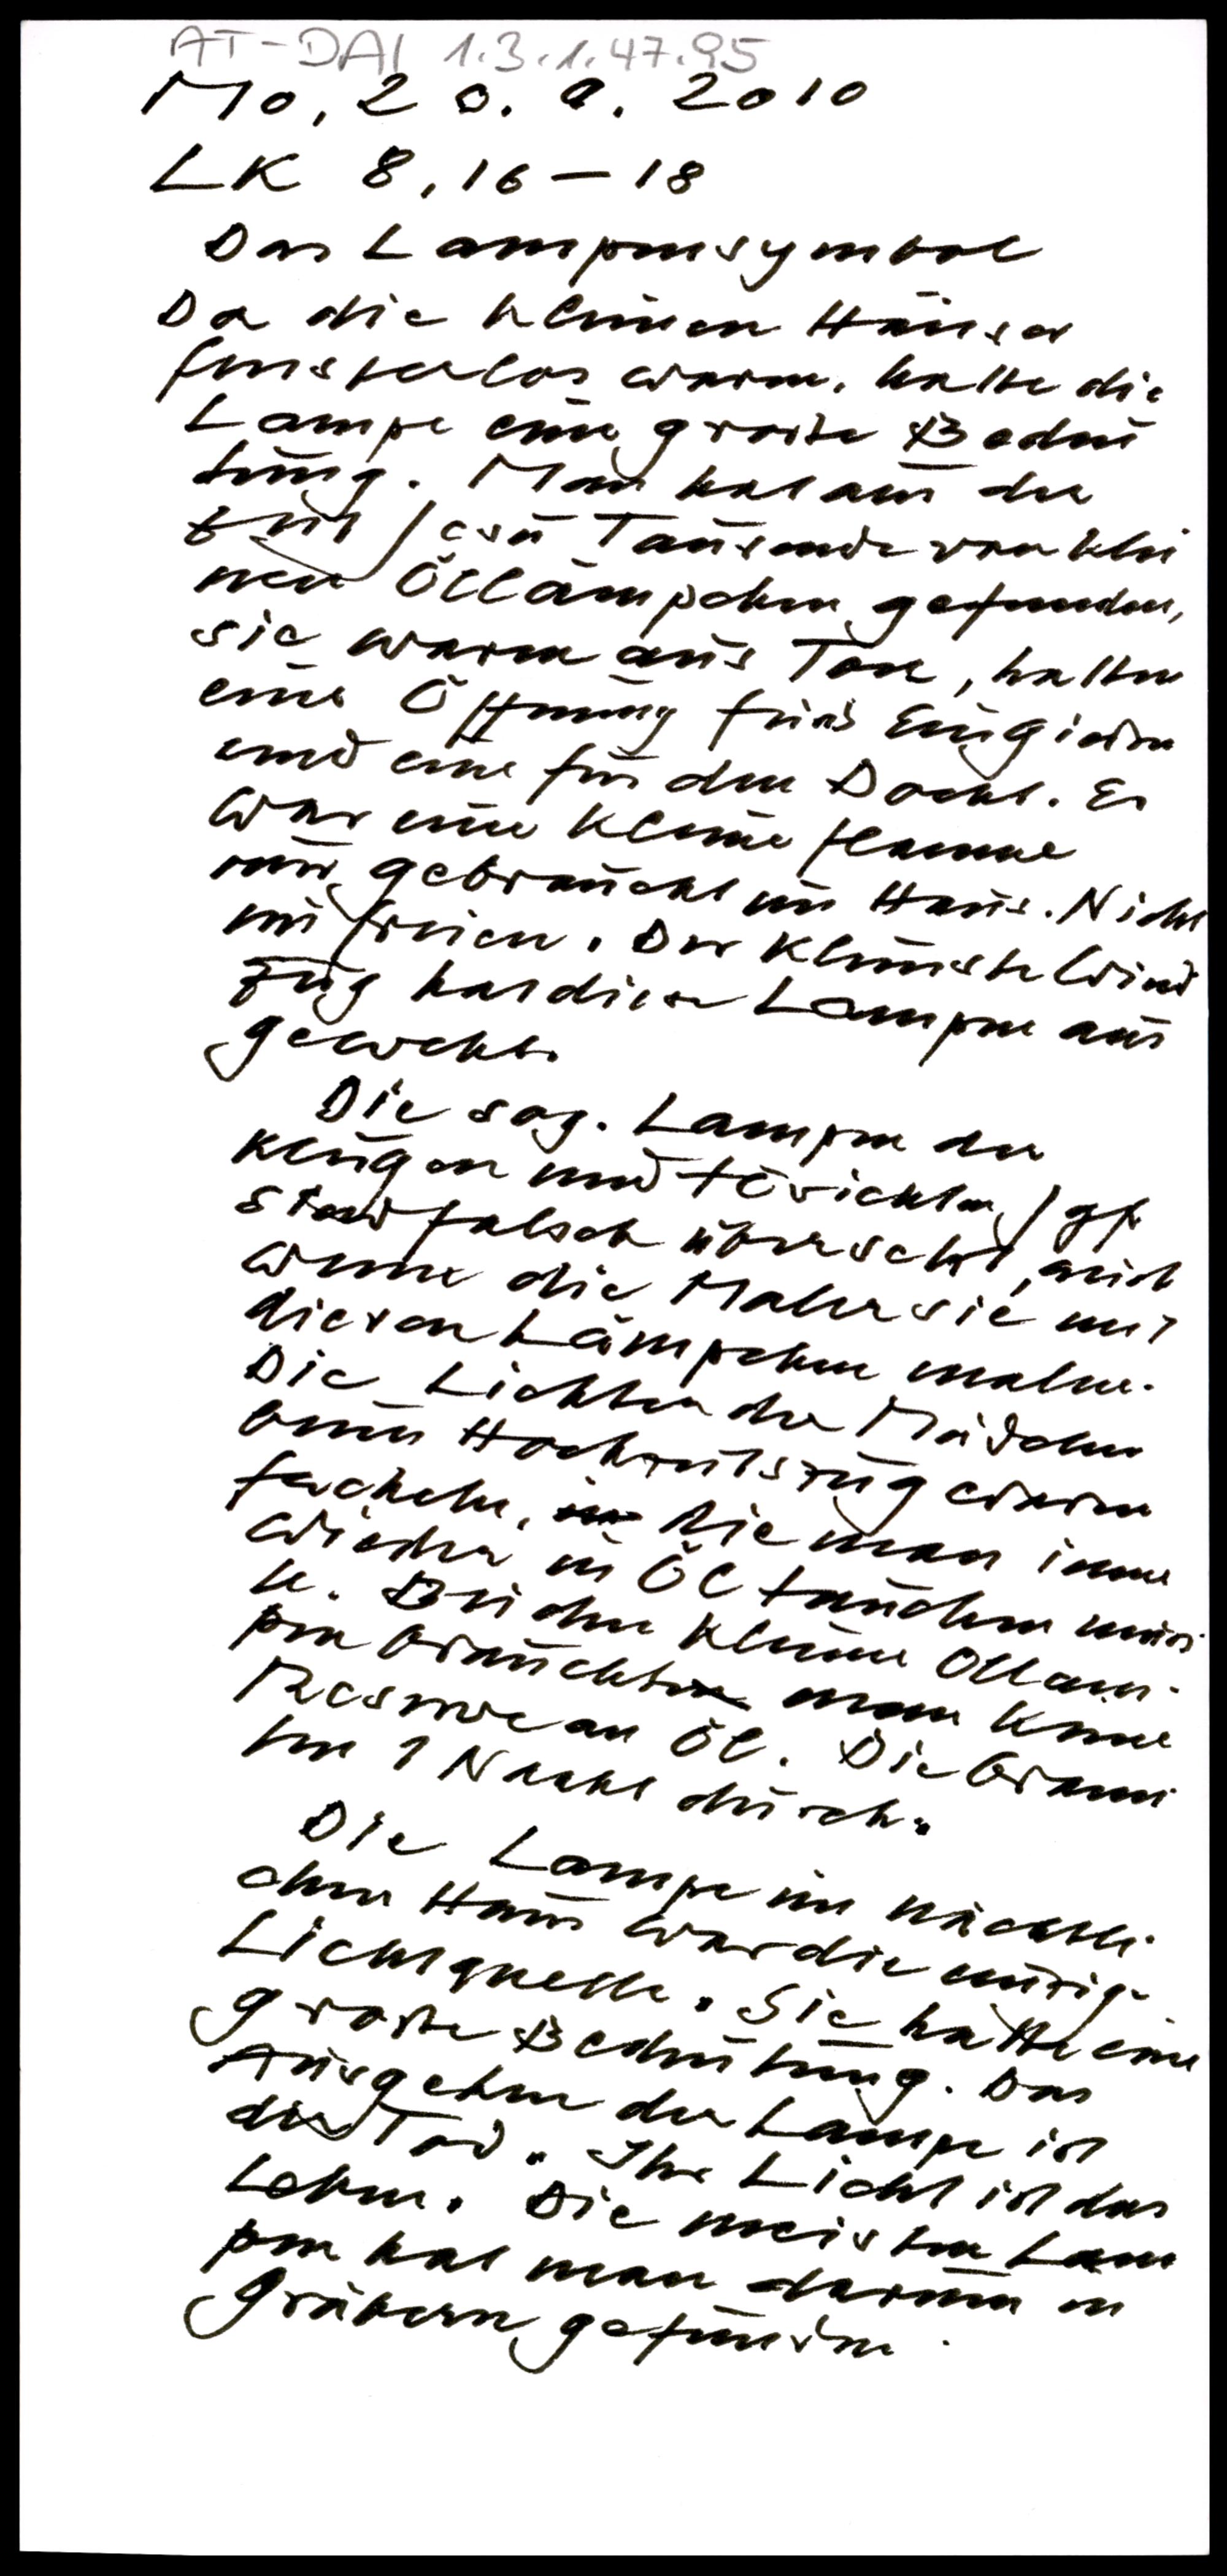 AT-DAI 1.3.1.47.95
Mo, 20. 9. 2010
LK 8,16-18
Das Lampensymbol
Da die kleinen Häuser
fensterlos waren, hatte die
Lampe eine große Bedeu
tung. Man hat aus der
Zeit Jesu Tausende von klei
nen Öllämpchen gefunden,
sie waren aus Ton, hatten
eine Öffnung fürs Eingießen
und eine für den Docht. Es
war eine kleine Flamme
nur gebraucht im Haus. Nicht
im Freien. Der kleinste Wind
zug hat diese Lampen aus
geweht.
Die sog. Lampen der
klugen und törichten Jgf.
sind falsch übersetzt, auch
wenn die Maler sie mit
diesen Lämpchen malen.
Die Lichter der Mädchen
beim Hochzeitszug waren
Fackeln, die man immer
wieder in Öl tauchen muss
te. Bei den kleinen Öllam
pen brauchte man keine
Reserve an Öl. Die brann
ten 1 Nacht durch.
Die Lampe im nächtli
chen Haus war die einzige
Lichtquelle. Sie hatte eine
große Bedeutung. Das
Ausgehen der Lampe ist
der Tod. Ihr Licht ist das
Leben. Die meisten Lam
pen hat man darum in
Gräbern gefunden.